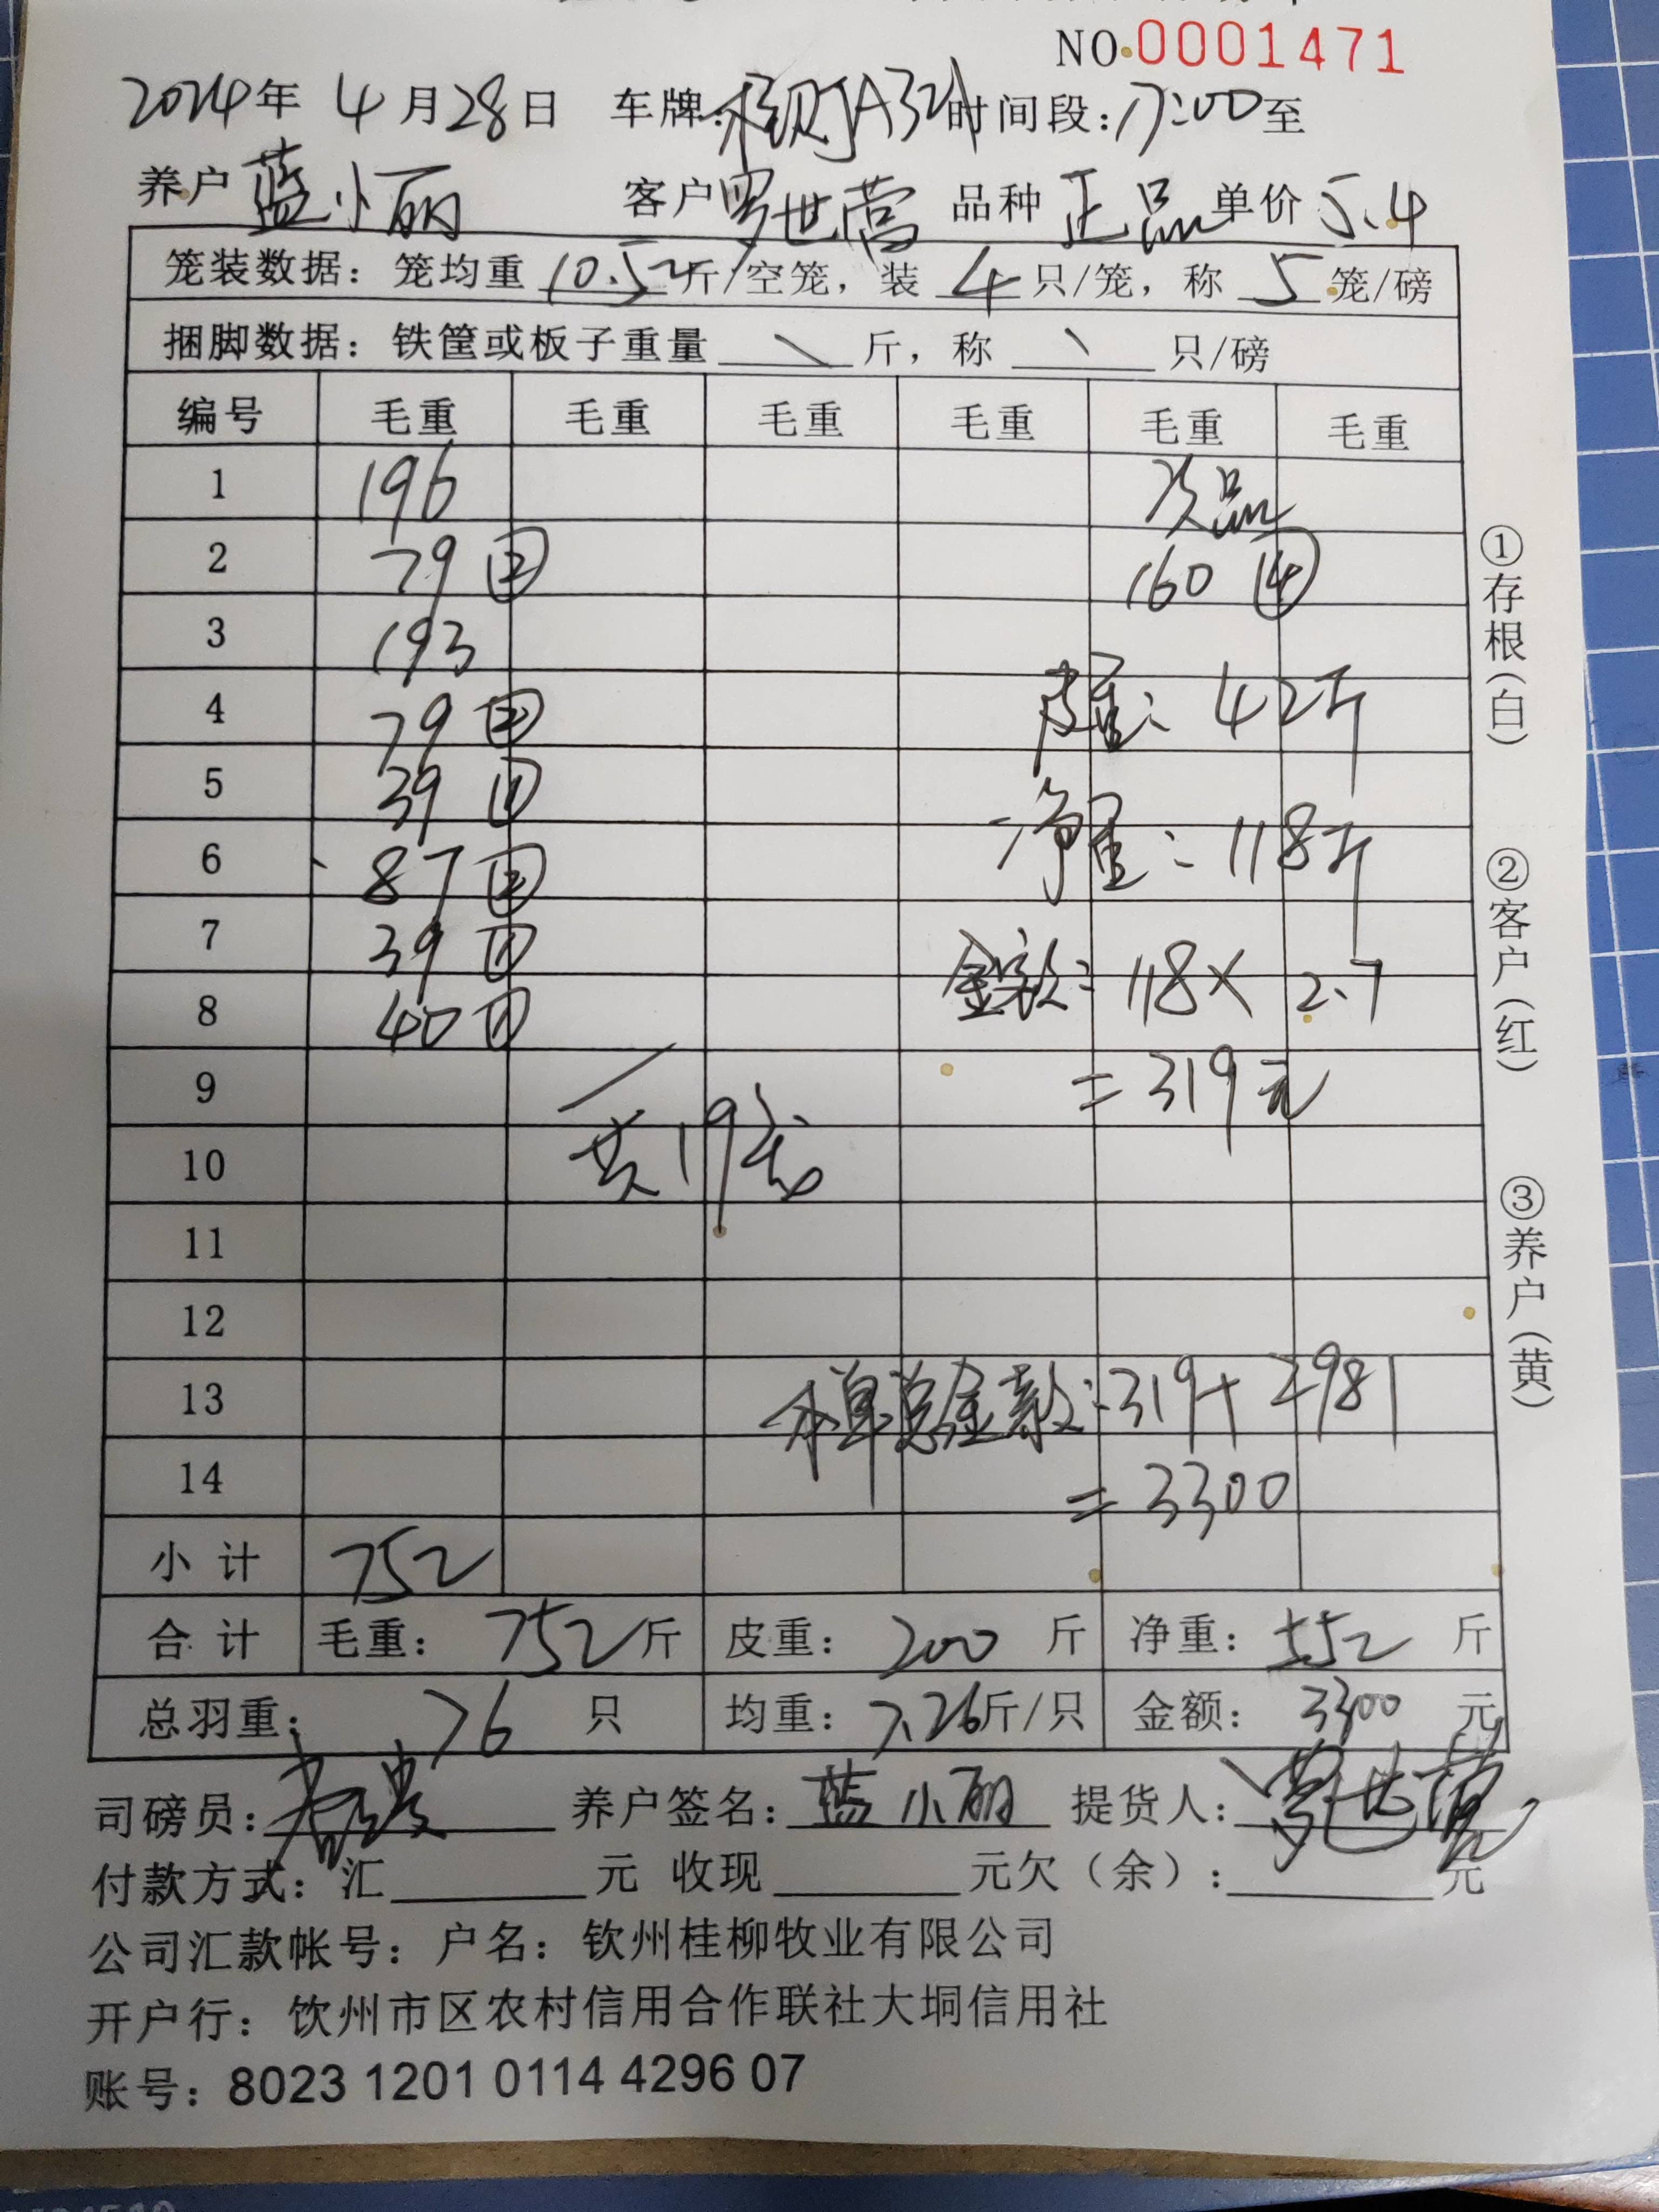 NO.0001471
2024年 4月28日 车牌: JA321 时间段:17:00至
养户 蓝小丽 客户 罗世营 品种 正品 单价 5.4
笼装数据：笼均重 10.52 斤/空笼，装 4 只/笼，称 5 笼/磅
捆脚数据：铁筐或板子重量 \ 斤，称 \ 只/磅
编号 毛重 毛重 毛重 毛重 毛重 毛重
1 196 次品
2 79 ② 160 ④
3 193
4 79 ② 皮重: 42斤
5 39 ① 净重: 118斤
6 87 ②
7 39 ① 金额: 118× 2.7
8 40 ①
9 = 319元
10 共19笼
11
12
13 本单总金额:319+2981
14 = 3300
小 计 752
合 计 毛重: 752斤 皮重: 200 斤 净重: 552 斤
总羽重: 76 只 均重: 7.26斤/只 金额: 3300 元
司磅员: 养户签名: 蓝小丽 提货人: 罗世营
付款方式：汇 元 收现 元欠（余）: 元
公司汇款帐号：户名：钦州桂柳牧业有限公司
开户行：饮州市区农村信用合作联社大垌信用社
账号：8023 1201 0114 4296 07
①存根(白) ②客户(红) ③养户(黄)